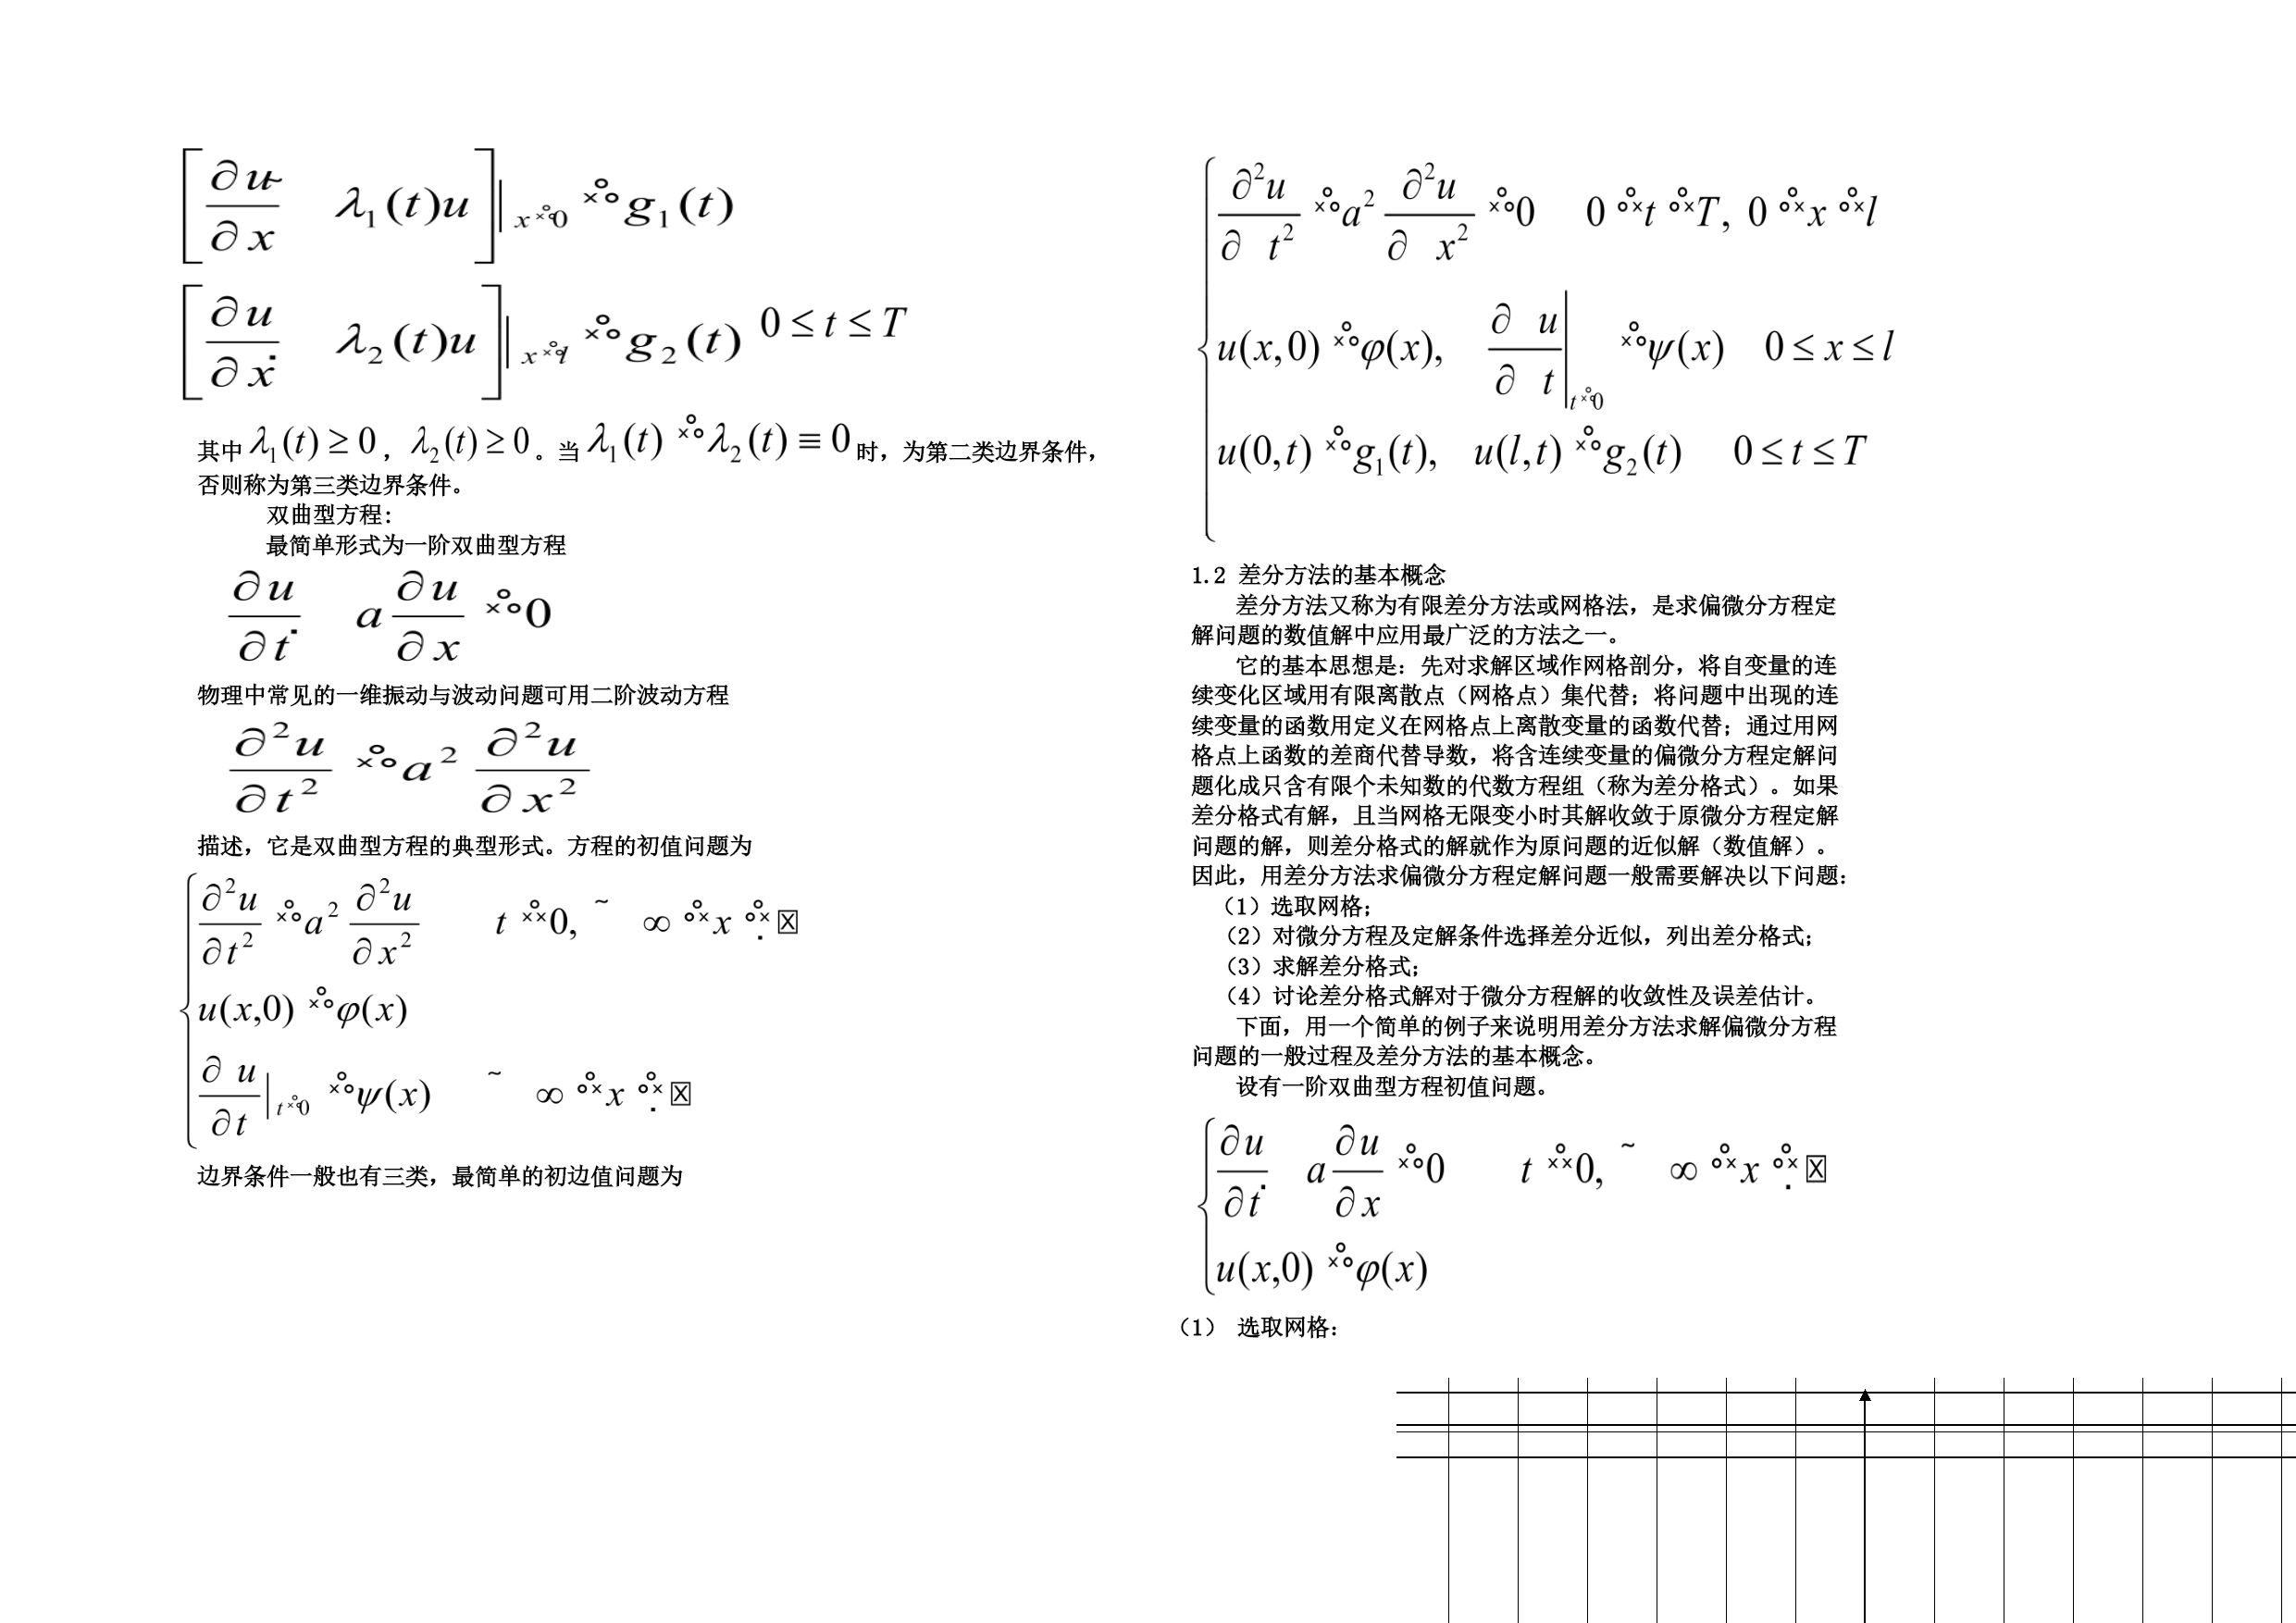 [∂u/∂x λ₁(t)u]|ₓ₌₀ = g₁(t)
[∂u/∂x λ₂(t)u]|ₓ₌ₗ = g₂(t) 0≤t≤T
其中λ₁(t)≥0，λ₂(t)≥0。当λ₁(t)=λ₂(t)≡0时，为第二类边界条件，
否则称为第三类边界条件。
双曲型方程：
最简单形式为一阶双曲型方程
∂u/∂t a ∂u/∂x = 0
物理中常见的一维振动与波动问题可用二阶波动方程
∂²u/∂t² = a² ∂²u/∂x²
描述，它是双曲型方程的典型形式。方程的初值问题为
∂²u/∂t² = a² ∂²u/∂x² t 0, ~ ∞ x
u(x,0) = φ(x)
∂u/∂t|ₜ₌₀ = ψ(x) ~ ∞ x
边界条件一般也有三类，最简单的初边值问题为
∂²u/∂t² a² ∂²u/∂x² = 0 0 t T, 0 x l
u(x,0) = φ(x), ∂u/∂t|ₜ₌₀ = ψ(x) 0≤x≤l
u(0,t) = g₁(t), u(l,t) = g₂(t) 0≤t≤T
1.2 差分方法的基本概念
差分方法又称为有限差分方法或网格法，是求偏微分方程定
解问题的数值解中应用最广泛的方法之一。
它的基本思想是：先对求解区域作网格剖分，将自变量的连
续变化区域用有限离散点（网格点）集代替；将问题中出现的连
续变量的函数用定义在网格点上离散变量的函数代替；通过用网
格点上函数的差商代替导数，将含连续变量的偏微分方程定解问
题化成只含有限个未知数的代数方程组（称为差分格式）。如果
差分格式有解，且当网格无限变小时其解收敛于原微分方程定解
问题的解，则差分格式的解就作为原问题的近似解（数值解）。
因此，用差分方法求偏微分方程定解问题一般需要解决以下问题：
（1）选取网格；
（2）对微分方程及定解条件选择差分近似，列出差分格式；
（3）求解差分格式；
（4）讨论差分格式解对于微分方程解的收敛性及误差估计。
下面，用一个简单的例子来说明用差分方法求解偏微分方程
问题的一般过程及差分方法的基本概念。
设有一阶双曲型方程初值问题。
∂u/∂t a ∂u/∂x = 0 t 0, ~ ∞ x
u(x,0) = φ(x)
（1） 选取网格：